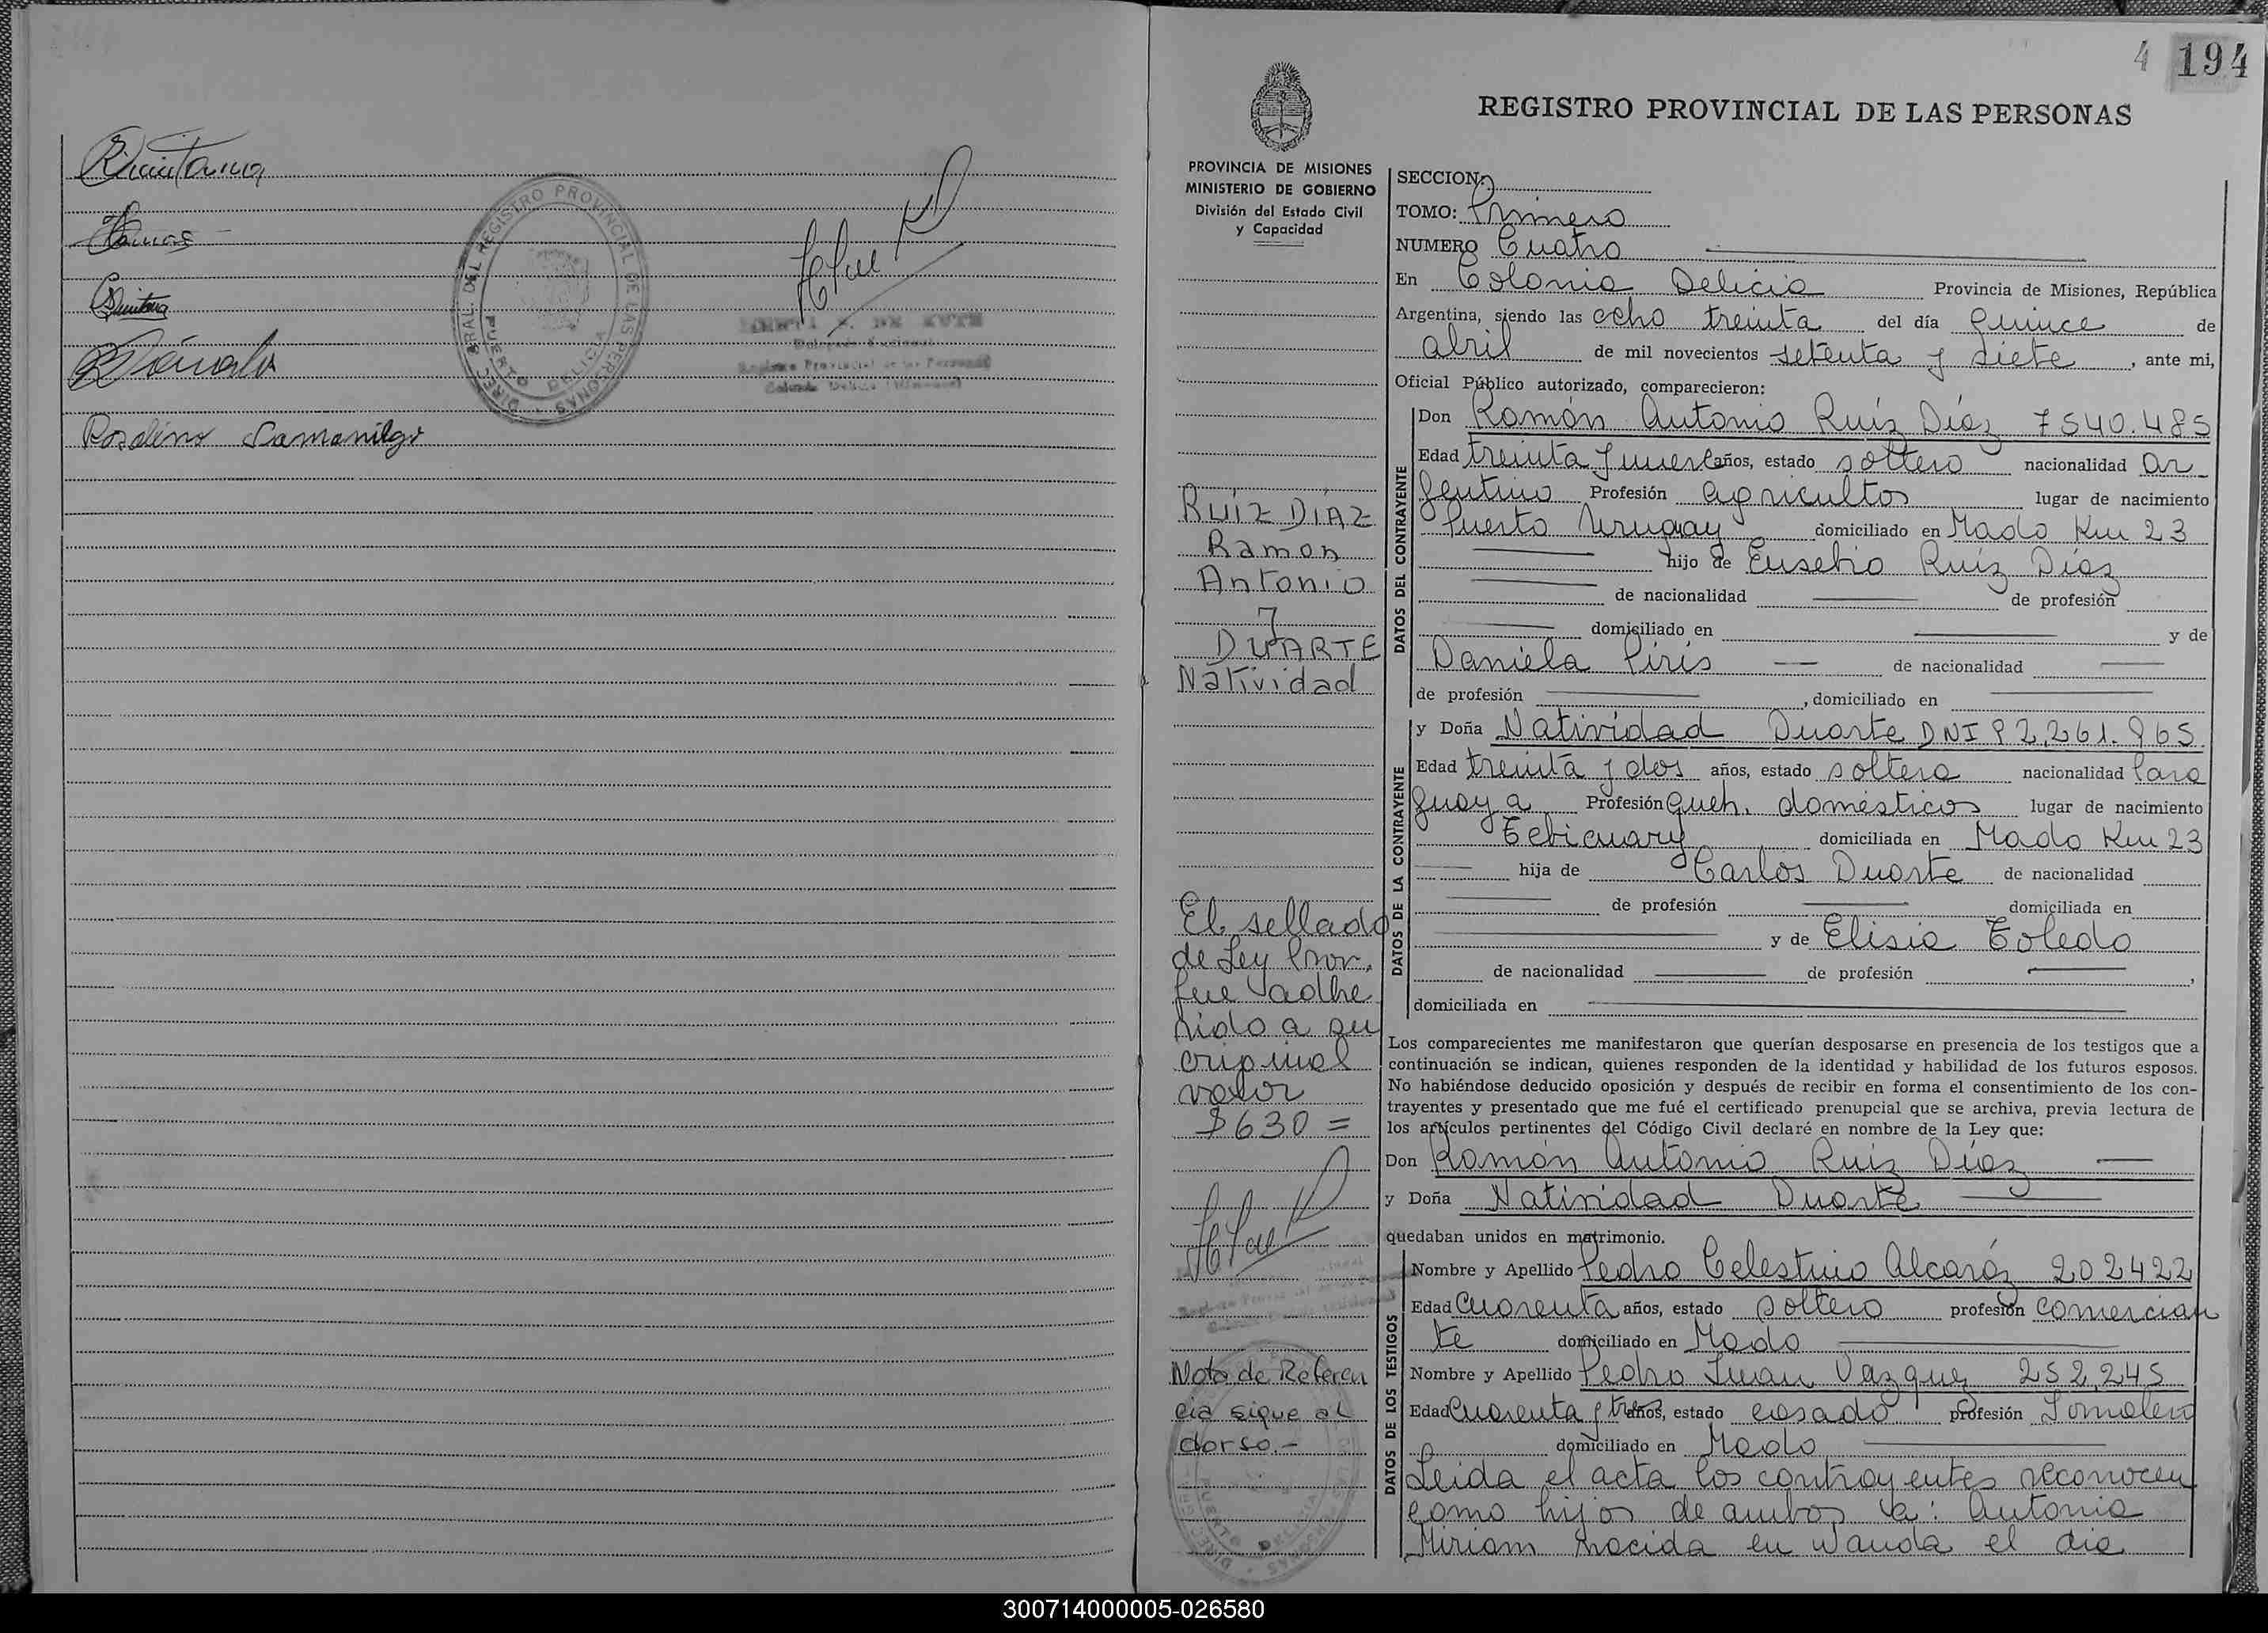 Quintana
Quintana
Rosalino Samanilgo
DIREC. GRAL. DEL REGISTRO PROVINCIAL DE LAS PERSONAS
PUERTO DELICIA
4 194
REGISTRO PROVINCIAL DE LAS PERSONAS
PROVINCIA DE MISIONES
MINISTERIO DE GOBIERNO
División del Estado Civil
y Capacidad
RUÍZ DÍAZ
Ramon
Antonio
y
DUARTE
Natividad
El sellado
de Ley Prov.
fue adhe
rido a su
original
valor
$ 630 =
Nota de Referen
cia sigue al
dorso.-
SECCION:
TOMO: Primero
NUMERO Cuatro
En Colonia Delicia Provincia de Misiones, República
Argentina, siendo las ocho treinta del día quince de
abril de mil novecientos setenta y siete, ante mi,
Oficial Público autorizado, comparecieron:
DATOS DEL CONTRAYENTE
Don Ramón Antonio Ruíz Díaz 7540.485
Edad treinta y nueve años, estado soltero nacionalidad ar
gentino Profesión agricultor lugar de nacimiento
Puerto Uruguay domiciliado en Mado Km 23
hijo de Eusebio Ruíz Díaz
de nacionalidad de profesión
domiciliado en y de
Daniela Piris de nacionalidad
de profesión , domiciliado en
DATOS DE LA CONTRAYENTE
y Doña Natividad Duarte DNI 92.261.965
Edad treinta y dos años, estado soltera nacionalidad Para
guaya Profesión queh. domésticos lugar de nacimiento
Tebicuary domiciliada en Mado Km 23
hija de Carlos Duarte de nacionalidad
de profesión domiciliada en
y de Elisia Toledo
de nacionalidad de profesión ,
domiciliada en
Los comparecientes me manifestaron que querían desposarse en presencia de los testigos que a
continuación se indican, quienes responden de la identidad y habilidad de los futuros esposos.
No habiéndose deducido oposición y después de recibir en forma el consentimiento de los con-
trayentes y presentado que me fué el certificado prenupcial que se archiva, previa lectura de
los artículos pertinentes del Código Civil declaré en nombre de la Ley que:
Don Ramón Antonio Ruiz Díaz
y Doña Natividad Duarte
quedaban unidos en matrimonio.
DATOS DE LOS TESTIGOS
Nombre y Apellido Pedro Celestino Alcaráz 202422
Edad Cuarenta años, estado soltero profesión comercian
te domiciliado en Mado
Nombre y Apellido Pedro Juan Vazquez 252.245
Edad Cuarenta y tres años, estado casado profesión Jornalero
domiciliado en Mado
Leida el acta los contrayentes reconocen
como hijos de ambos a: Antonia
Miriam nacida en Wanda el dia
300714000005-026580